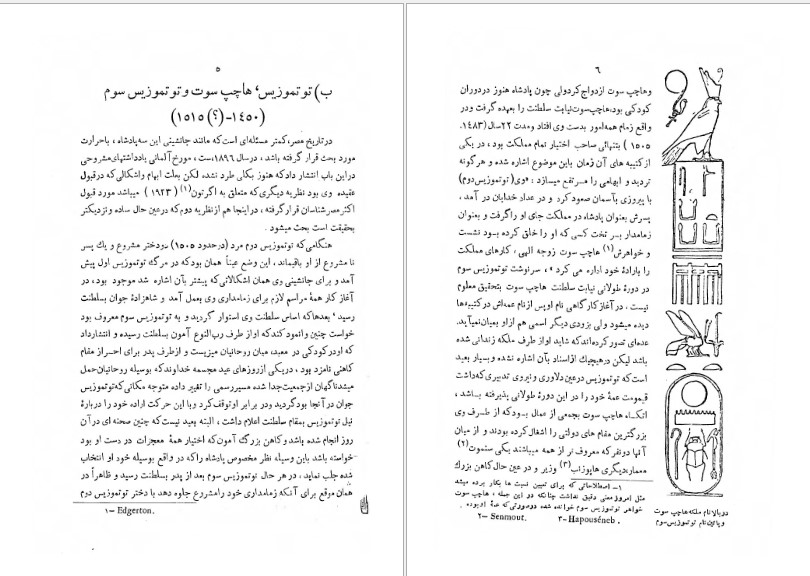 ٥
ب) توتموزیس، هاچپ سوت و توتموزیس سوم
(۱۴۵۰-(؟) ۱۵۱۵)
درتاریخ مصر، کمتر مسئله‌ای است که مانند جانشینی این سه پادشاه، باحرارت
مورد بحث قرار گرفته باشد، درسال ۱۸۹۶، ست، مورخ آلمانی یادداشتهای مشروحی
دراین باب انتشار داد که هنوز بکلی طرد نشده لکن بعلت ابهام واشکالی که در قبول
عقیده وی بود نظریه دیگری که متعلق به اگرتون(۱) (۱۹۳۳) میباشد مورد قبول
اکثر مصرشناسان قرار گرفته، دراینجا هم از نظریه دوم که درعین حال ساده ونزدیکتر
بحقیقت است بحث میشود.
هنگامی که توتموزیس دوم مرد (درحدود ۱۵۰۵) دودختر مشروع و یك پسر
نا مشروع از او باقیماند، این وضع عیناً همان بود که در مرگ توتموزیس اول پیش
آمد و برای جانشینی وی همان اشکالاتی که پیشتر بآن اشاره شد موجود بود، در
آغاز کار همهٔ مراسم لازم برای زمامداری وی بعمل آمد و شاهزادهٔ جوان بسلطنت
رسید، بعدها که اساس سلطنت وی استوار گردید و به توتموزیس سوم معروف بود
خواست چنین وانمود کند که او از طرف رب‌النوع آمون بسلطنت رسیده و انتشار داد
که او در کودکی در معبد، میان روحانیان میزیست و از طرف پدر برای احراز مقام
کاهنی نامزد بود، در یکی از روزهای عید مجسمه خداوند که بوسیله روحانیان حمل
میشد ناگهان از جمعیت جدا شده مسیر رسمی را تغییر داده متوجه مکانی که توتموزیس
جوان در آنجا بود گردید ودر برابر او توقف کرد و با این حرکت اراده خود را دربارهٔ
نیل توتموزیس بمقام سلطنت اعلام داشت، البته بعید نیست که چنین صحنه ای در آن
روز انجام شده باشد و کاهن بزرگ آمون که اختیار همهٔ معجزات در دست او بود
خواسته باشد باین وسیله نظر مخصوص پادشاه را که در واقع بوسیله خود او انتخاب
شده جلب نماید، در هر حال توتموزیس سوم بعد از پدر بسلطنت رسید و ظاهراً در
همان موقع برای آنکه زمامداری خود را مشروع جلوه دهد با دختر توتموزیس دوم
۱- Edgerton.
٦
وهاچپ سوت ازدواج کرد ولی چون پادشاه هنوز در دوران
کودکی بود، هاچپ‌سوت نیابت سلطنت را بعهده گرفت ودر
واقع زمام همه امور بدست وی افتاد ومدت ۲۲ سال (۱۴۸۳-
۱۵۰۵) بتنهائی صاحب اختیار تمام مملکت بود، در یکی
از کتیبه های آن زمان باین موضوع اشاره شده و هرگونه
تردید و ابهامی را مرتفع میسازد: «وی (توتموزیس دوم)
با پیروزی بآسمان صعود کرد و در عداد خدایان در آمد،
پسرش بعنوان پادشاه در مملکت جای او را گرفت و بعنوان
زمامدار بسر تخت کسی که او را خلق کرده بود نشست
و خواهرش(۱) هاچپ سوت زوجه الهی، کارهای مملکت
را بارادهٔ خود اداره می کرد»، سرنوشت توتموزیس سوم
در دورهٔ طولانی نیابت سلطنت هاچپ سوت بتحقیق معلوم
نیست، در آغاز کار گاهی نام او پس از نام عمه‌اش در کتیبه‌ها
دیده میشود ولی بزودی دیگر اسمی هم از او بمیان نمیآید.
عده‌ای تصور کرده‌اند که شاید او از طرف ملکه زندانی شده
باشد لیکن در هیچیك از اسناد بآن اشاره نشده وبسیار بعید
است که توتموزیس در عین دلاوری و نیروی تدبیری که داشت
قیمومت عمهٔ خود را در این دورهٔ طولانی پذیرفته باشد،
اتکاء هاچپ سوت بجمعی از عمال بود که از طرف وی
بزرگترین مقام های دولتی را اشغال کرده بودند و از میان
آنها دونفر که معروف تر از همه میباشند یکی سنموت(۲)
معمار، دیگری هاپوزنب(۳) وزیر و در عین حال کاهن بزرك
۱- اصطلاحاتی که برای تعیین نسبت ها بکار برده میشد
مثل امروز معنی دقیق نداشت چنانکه در این جمله، هاچپ سوت
خواهر توتموزیس سوم خوانده شده درصورتی که عمهٔ او بوده.
۲- Senmout. ۳- Hapouséneb.
در بالا نام ملکه هاچپ سوت
و پائین نام توتموزیس سوم